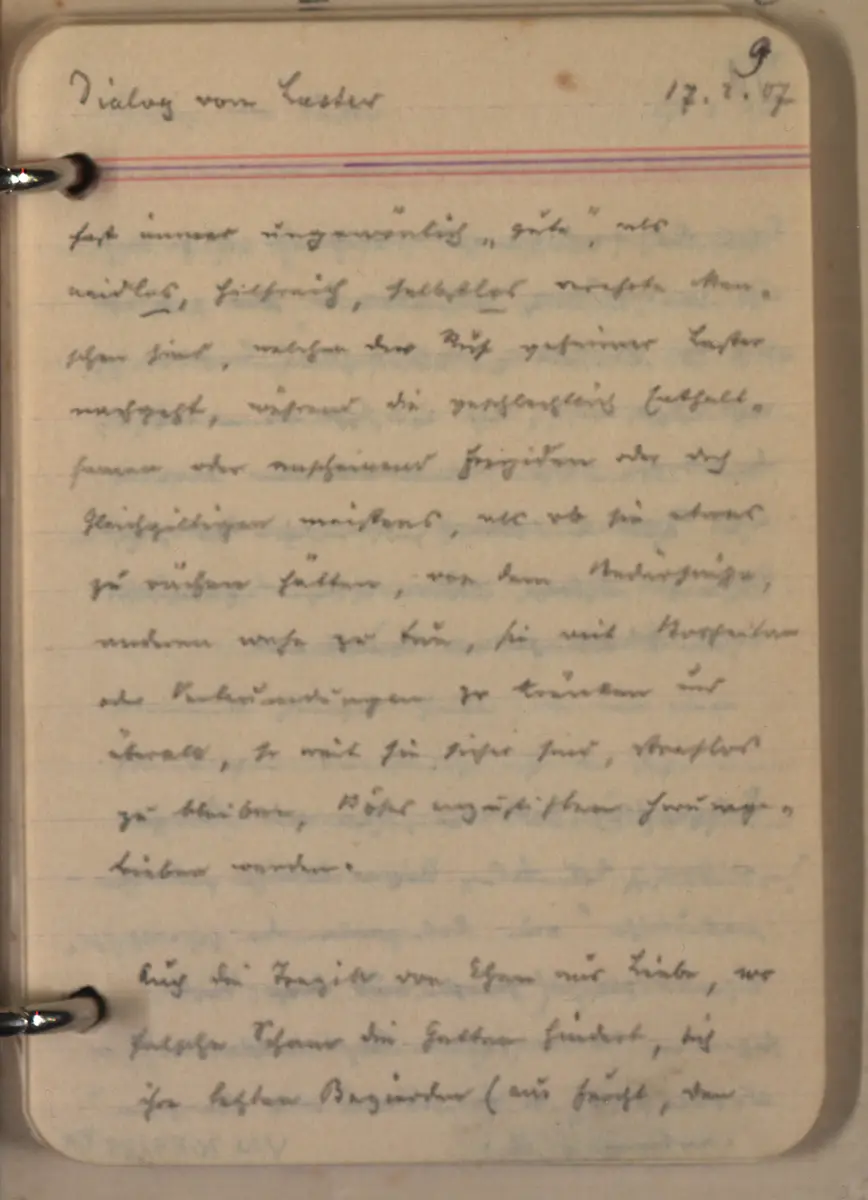 9
Dialog vom Laster 17. 2. 07
fast immer ungewönlich „gute“, als
neidlos, hilfreich, selbstlos verehrte Men-
schen sind, welchen der Ruf geheimer Laster
nachgeht, während die geschlechtlich Enthalt-
samen oder anscheinend Frigiden oder doch
Gleichgiltigen meistens, als ob sie etwas
zu rächen hätten, von dem Bedürfnisse,
anderen wehe zu tun, sie mit Bosheiten
oder Verleumdungen zu kränken und
überall, so weit sie sicher sind, straflos
zu bleiben, Böses anzustiften herumge-
trieben werden.
Auch die Tragik von Ehen aus Liebe, wo
falsche Scham die Gatten hindert, sich
ihre letzten Begierden (aus Furcht, den